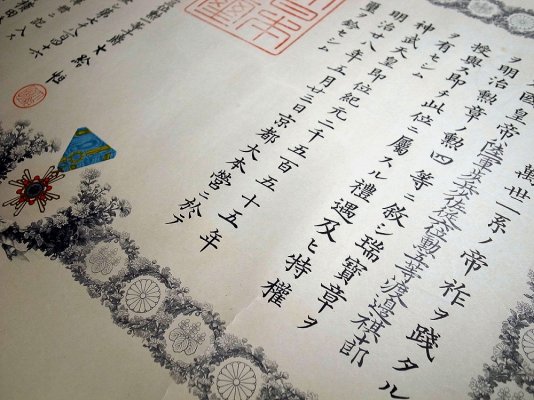 萬世一系ノ帝祚ヲ踐タル
國皇帝ハ陸軍歩兵佐從六位勲五等渡邊祺十郎
ヲ明治勲章ノ勲四等ニ敍シ瑞寶章ヲ
授與ス即チ此位ニ屬スル禮遇及ヒ特權
ヲ有セシム
神武天皇即位紀元二千五百五十五年
明治廿八年五月廿三日京都大本營ニ於テ
璽ヲ鈐セシム
大給恒